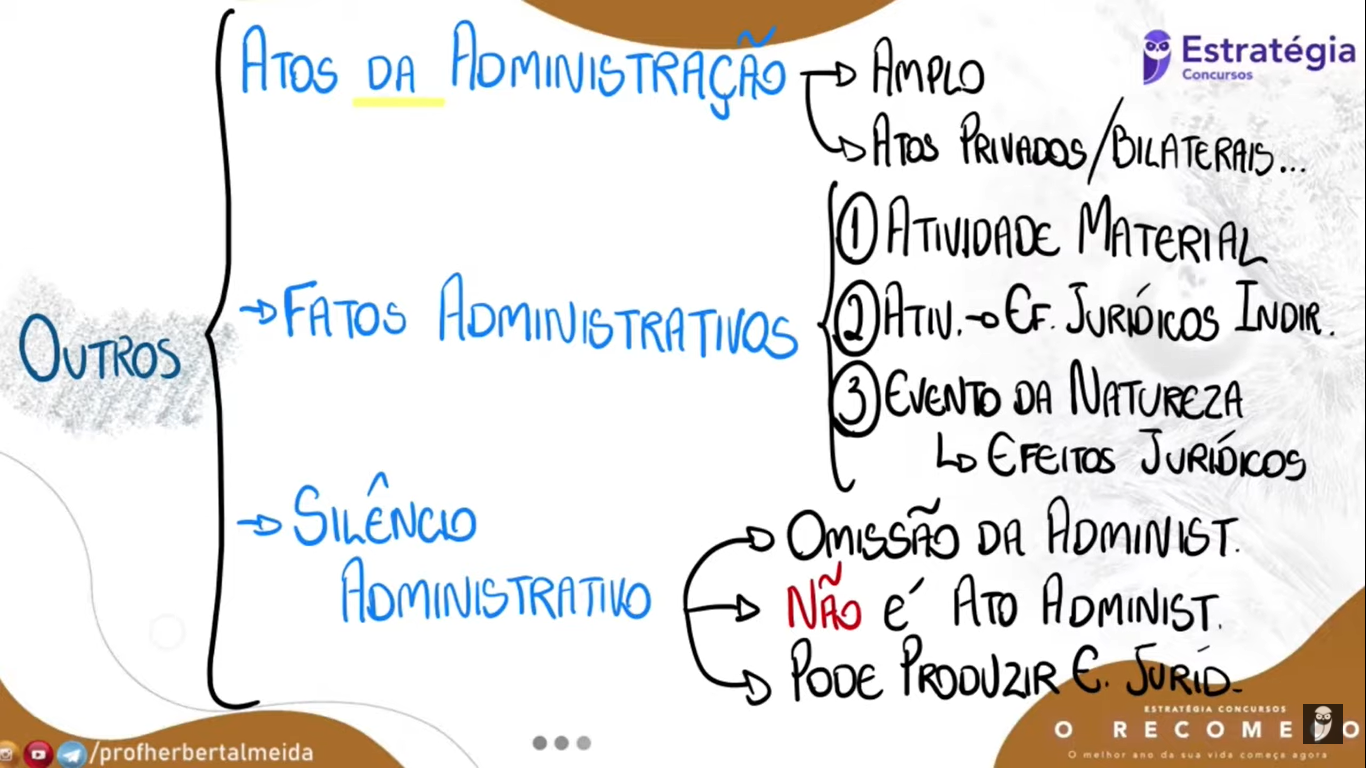 ATOS DA ADMINISTRAÇÃO
AMPLO
ATOS PRIVADOS/BILATERAIS...
Estratégia
Concursos
OUTROS
FATOS ADMINISTRATIVOS
1 ATIVIDADE MATERIAL
2 ATIV. → EF. JURÍDICOS INDIR.
3 EVENTO DA NATUREZA
EFEITOS JURÍDICOS
SILÊNCIO
ADMINISTRATIVO
OMISSÃO DA ADMINIST.
NÃO É ATO ADMINIST.
PODE PRODUZIR E. JURÍD.
/profherbertalmeida
ESTRATÉGIA CONCURSOS
O RECOMEÇO
O melhor ano da sua vida começa agora